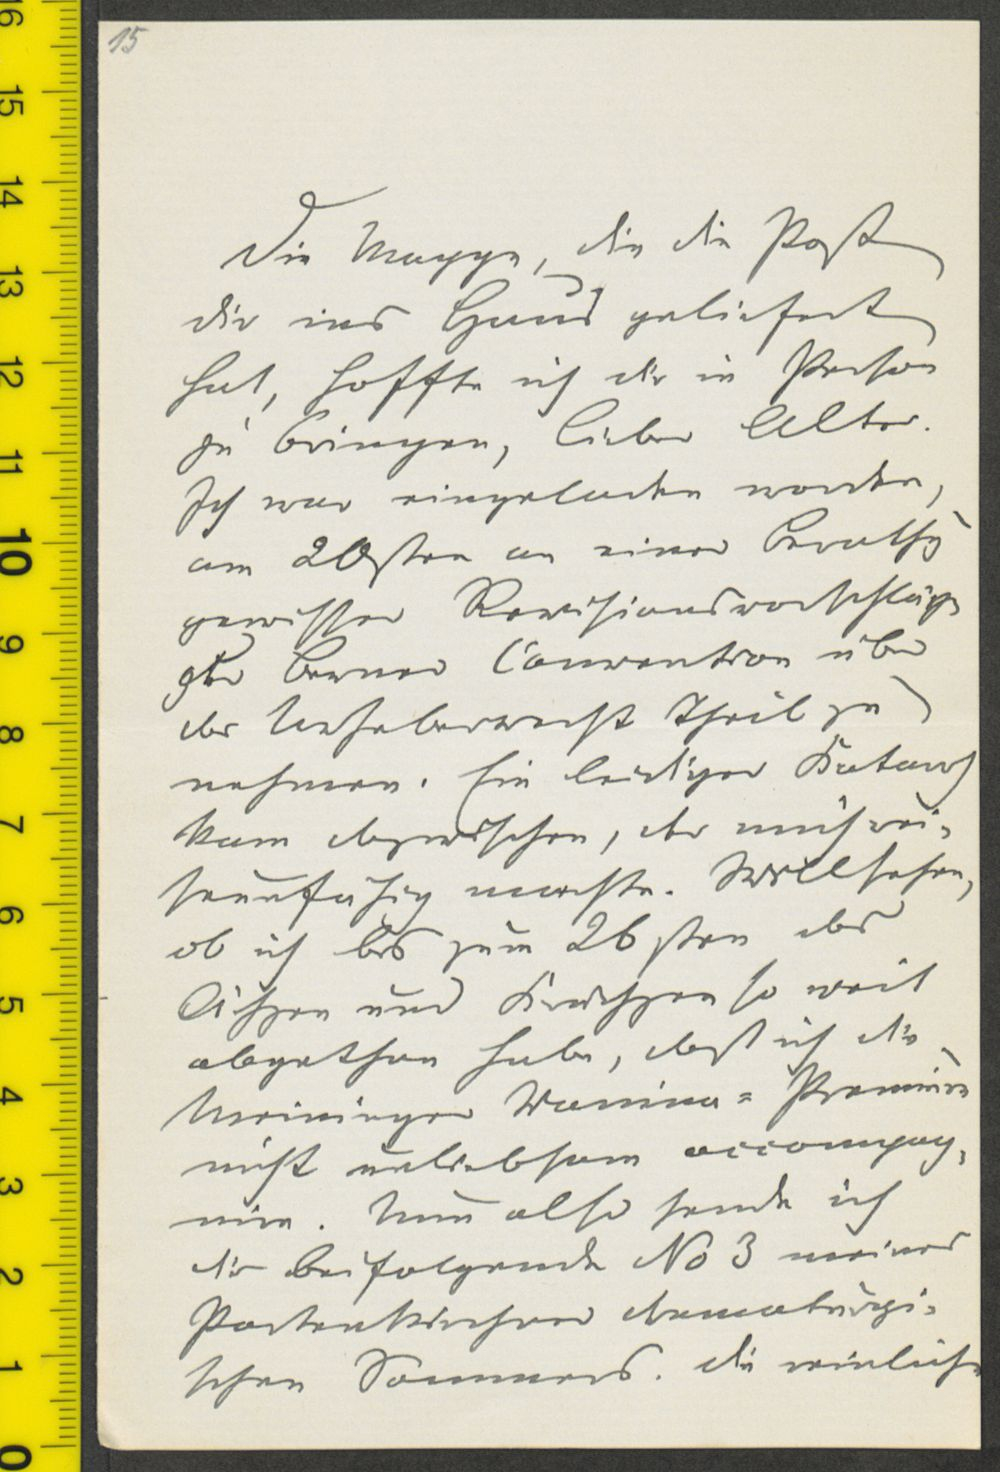 15
Die Mappe, die die Post
dir ins Haus geliefert
hat, hoffte ich dir in Person
zu bringen, lieber Alter.
Ich war eingeladen worden,
am 20sten an einer Berathg
gewisser Revisionsvorschläge
der Berner Convention über
das Urheberrecht Theil zu
nehmen. Ein leidiger Katarrh
kam dazwischen, der mich rei-
seunfähig machte. Will sehen,
ob ich bis zum 26sten das
Ächzen und Krächzen so weit
abgethan habe, daß ich die
Meininger Vanina-Premiere
nicht unliebsam accompag-
nire. Nun also sende ich
dir beifolgende No 3 meines
Partenkirchner dramaturgi-
schen Sommers. die